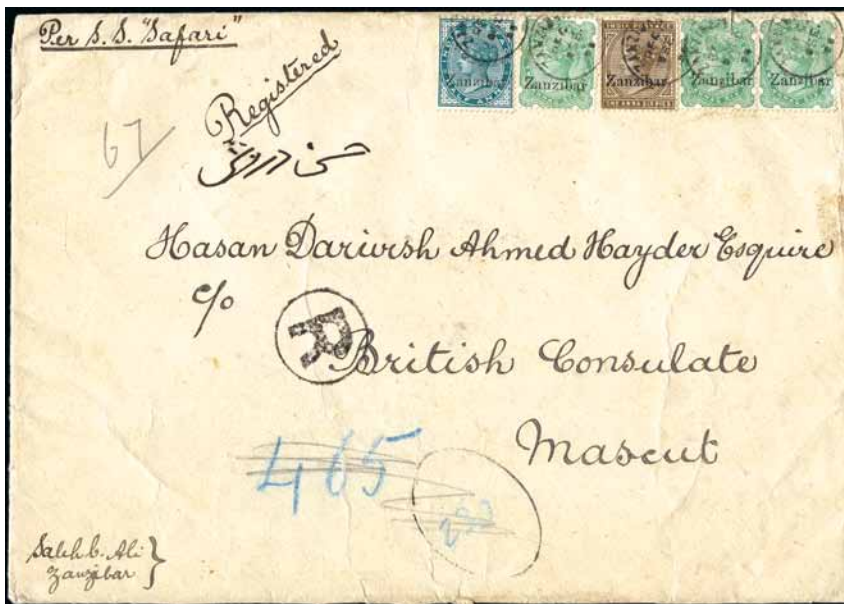 Per S. S. "Safari"
Zanzibar Zanzibar Zanzibar Zanzibar Zanzibar
Registered
67
حسن درویش
Hasan Darivrsh Ahmed Hayder Esquire
c/o
R
British Consulate
Mascut
465
Saleh b. Ali
Zanzibar